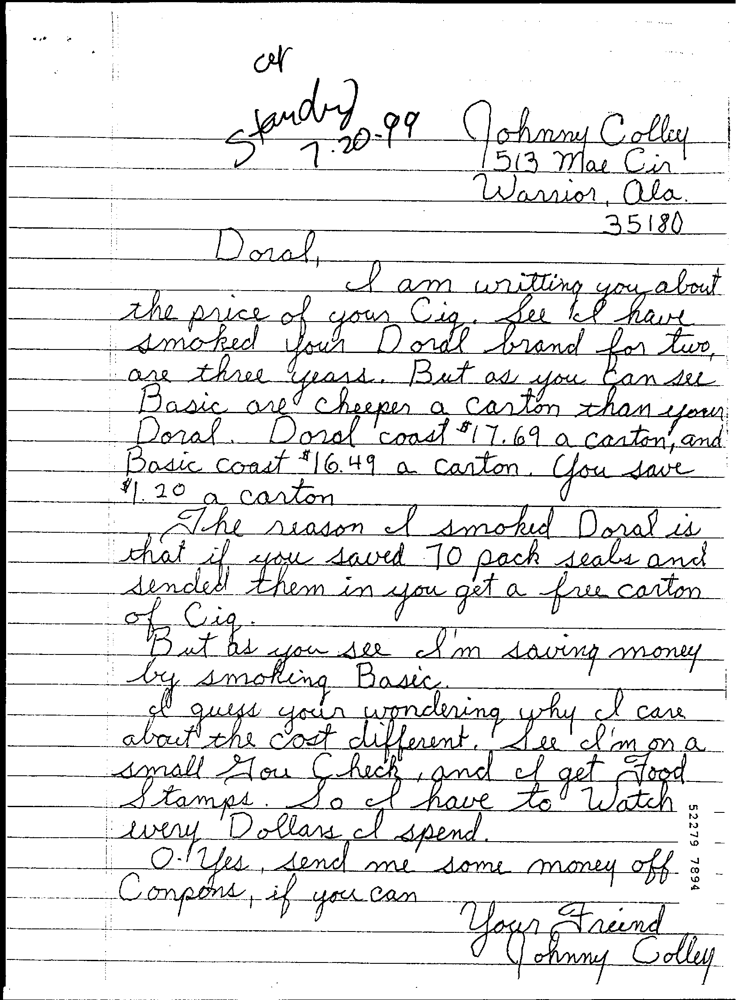 Standrd
7-20-99
Johnny Colley
1513 Mae Cir
Warrior, Ala.
35180
Doral,
I am writting you about
the price of your Cig. See I have
smoked your Doral brand for two,
are three years. But as you can see
Basic are cheeper a carton than your
Doral. Doral coast $17.69 a carton, and
Basic coast $16.49 a carton. You save
$1.20 a carton
The reason I smoked Doral is
that if you saved 70 pack seals and
sended them in you get a free carton
of Cig.
But as you see I'm saving money
by smoking Basic.
I guess your wondering why I care
about the cost different. See I'm on a
small Gov Check, and I get Food
Stamps. So I have to Watch
every Dollars I spend.
O! Yes, send me some money off
Conpons, if you can
Your Freind
Johnny Colley
52279 7894